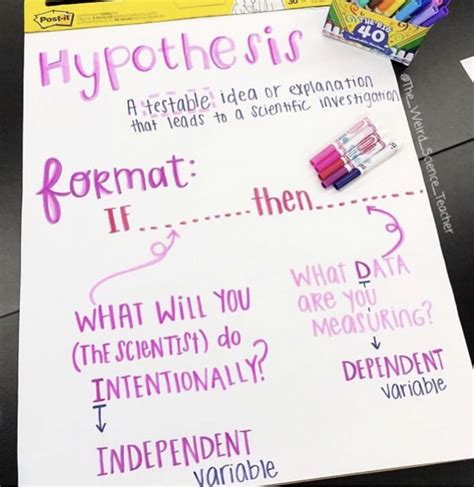 Post-it
THE BIG
40
Hypothesis
A testable idea or explanation
that leads to a scientific investigation
@The_Weird_Science_Teacher
format:
IF.........then.........
WHAT WILL YOU
(THE SCIENTIST) do
INTENTIONALLY?
I
INDEPENDENT
variable
WHAT DATA
are you
Measuring?
DEPENDENT
variable